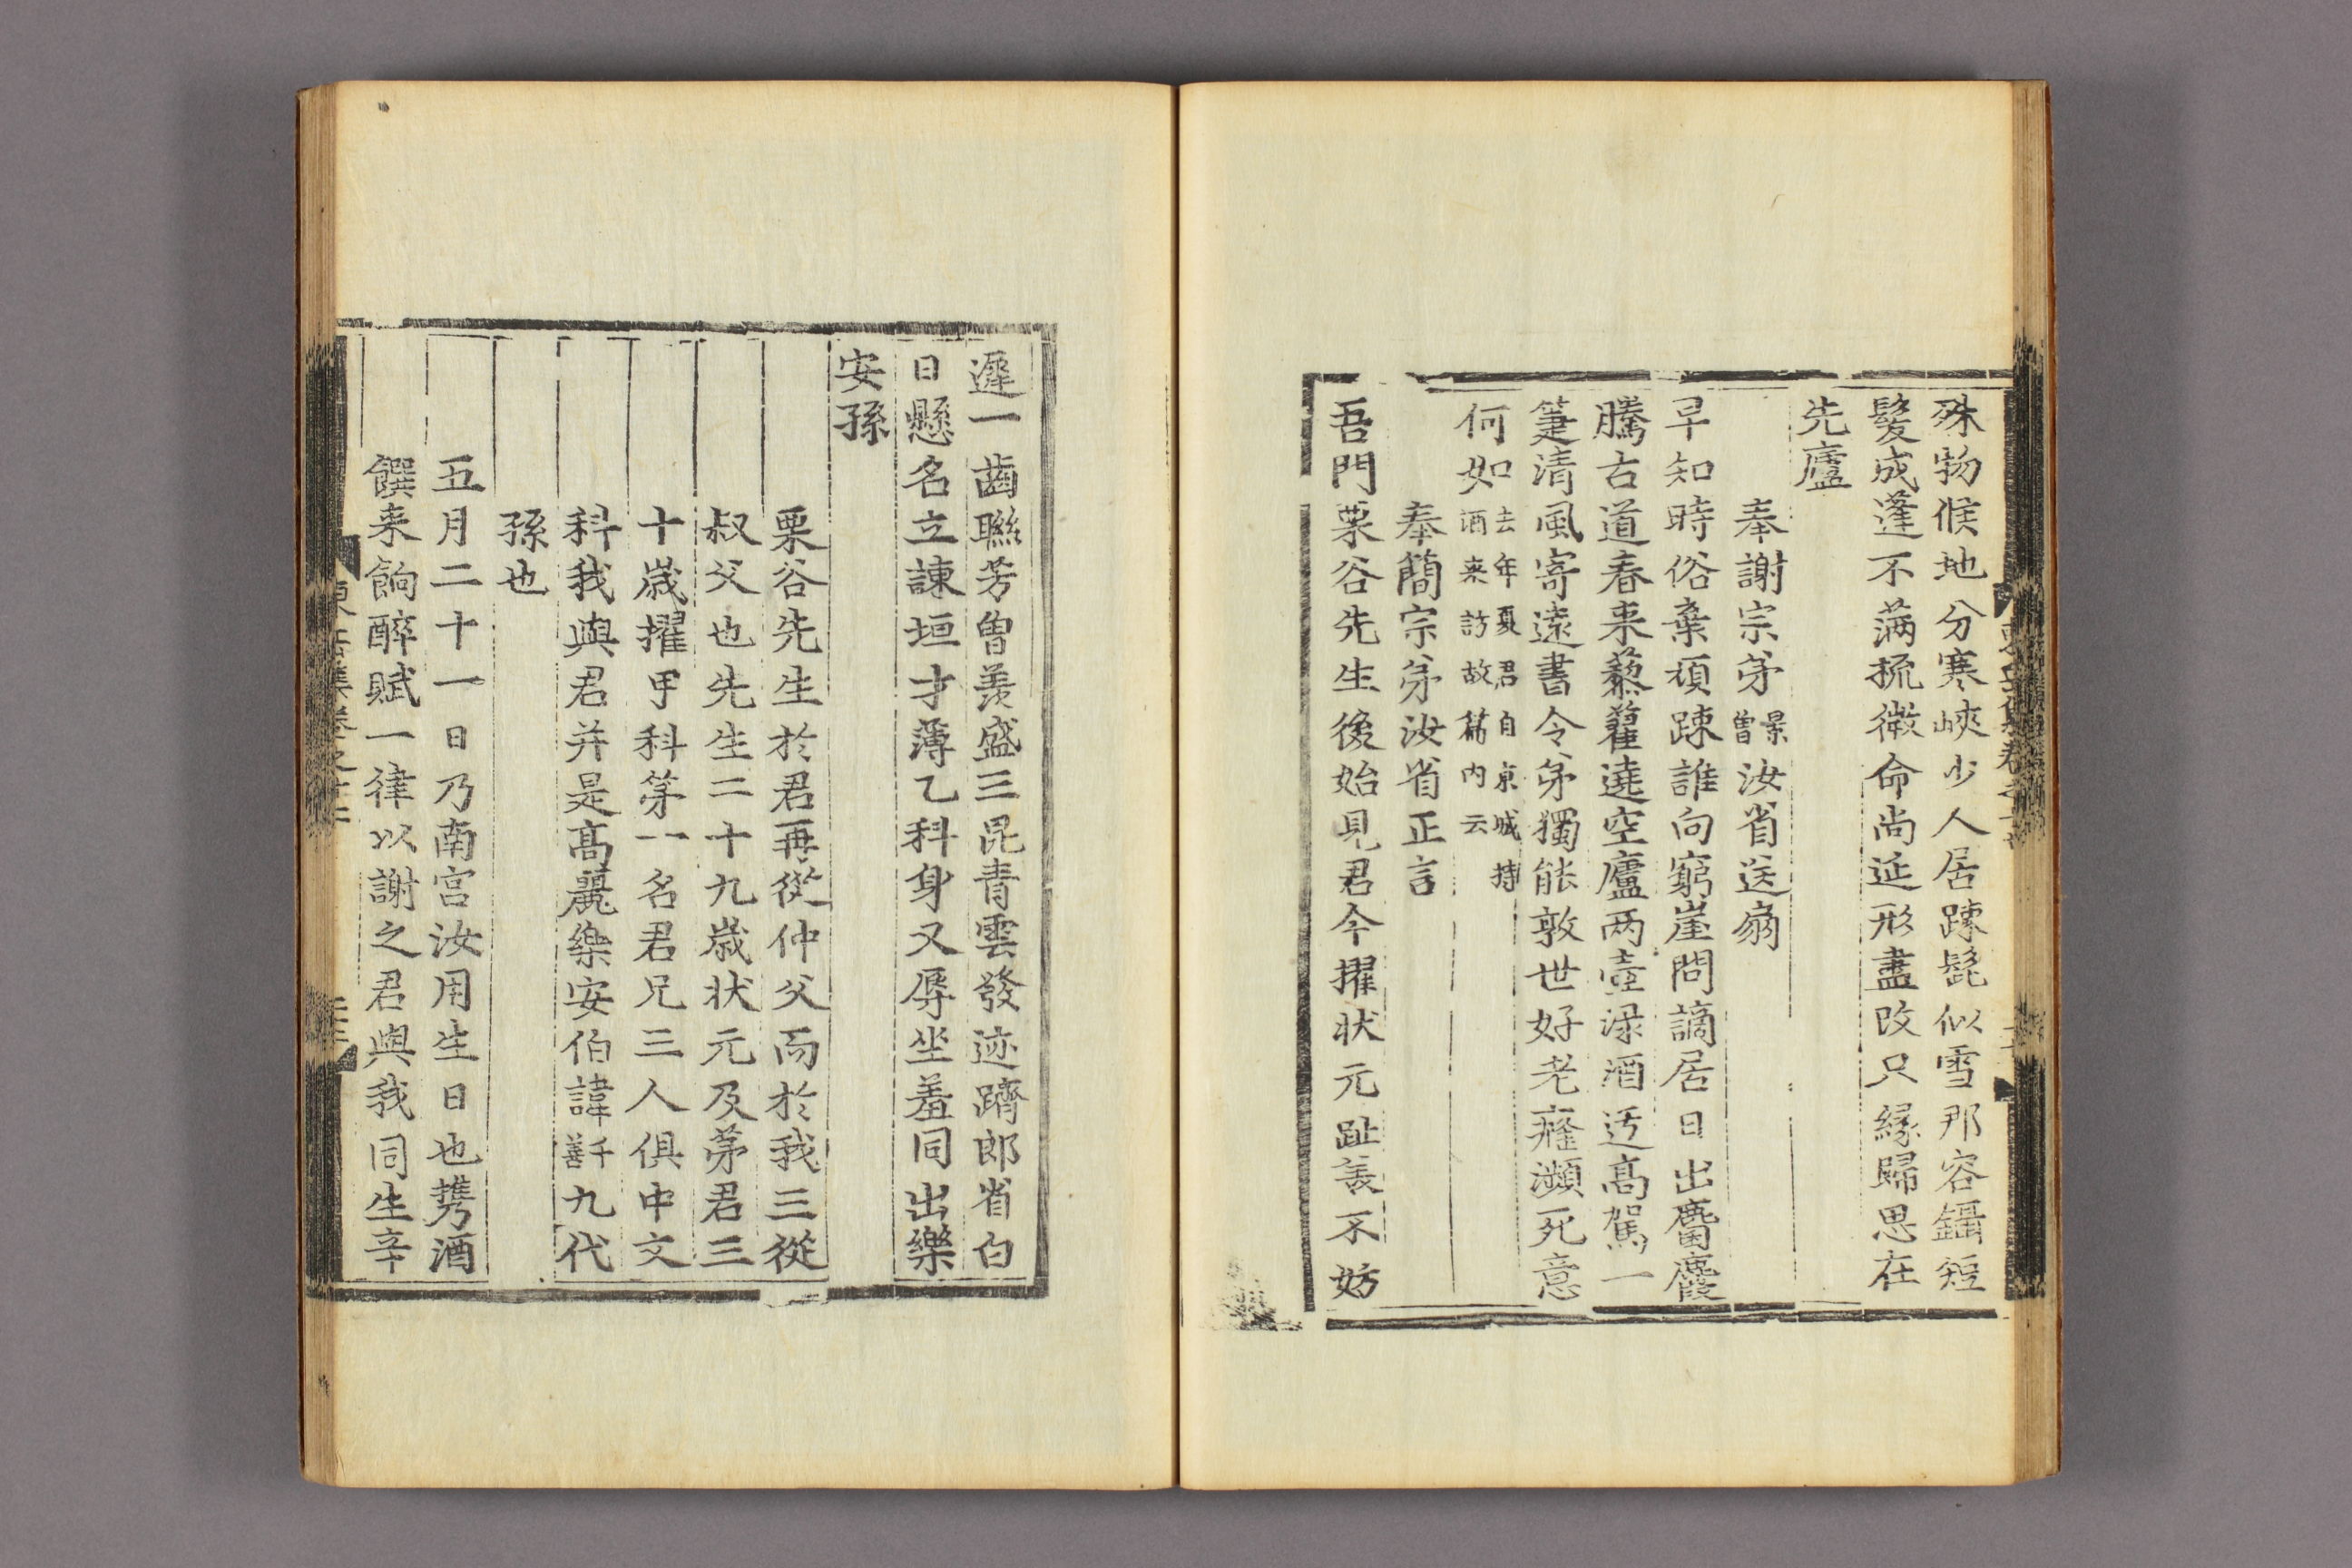 殊物候地分寒峽少人居踈髭似雪那容鑷短
髮成蓬不滿梳微命尚延形盡改只緣歸思在
先廬
奉謝宗弟景曾汝省送扇
早知時俗棄頑踈誰向窮崖問謫居日出麕麚
騰古道春來藜藿遶空廬兩壺渌酒迃高駕一
箑清風寄遠書令弟獨能敦世好老癃瀕死意
何如去年夏君自京城持酒来訪故篇内云
奉簡宗弟汝省正言
吾門栗谷先生後始見君今擢狀元趾美不妨
遲一齒聯芳曾羨盛三昆青雲發迹躋郎省白
日懸名立諫垣才薄乙科身又辱坐羞同出樂
安孫
栗谷先生於君再從仲父而於我三從
叔父也先生二十九歲狀元及第君三
十歲擢甲科第一名君兄三人俱中文
科我與君并是高麗樂安伯諱千善九代
孫也
五月二十一日乃南宫汝用生日也携酒
饌来餉醉賦一律以謝之君與我同生辛